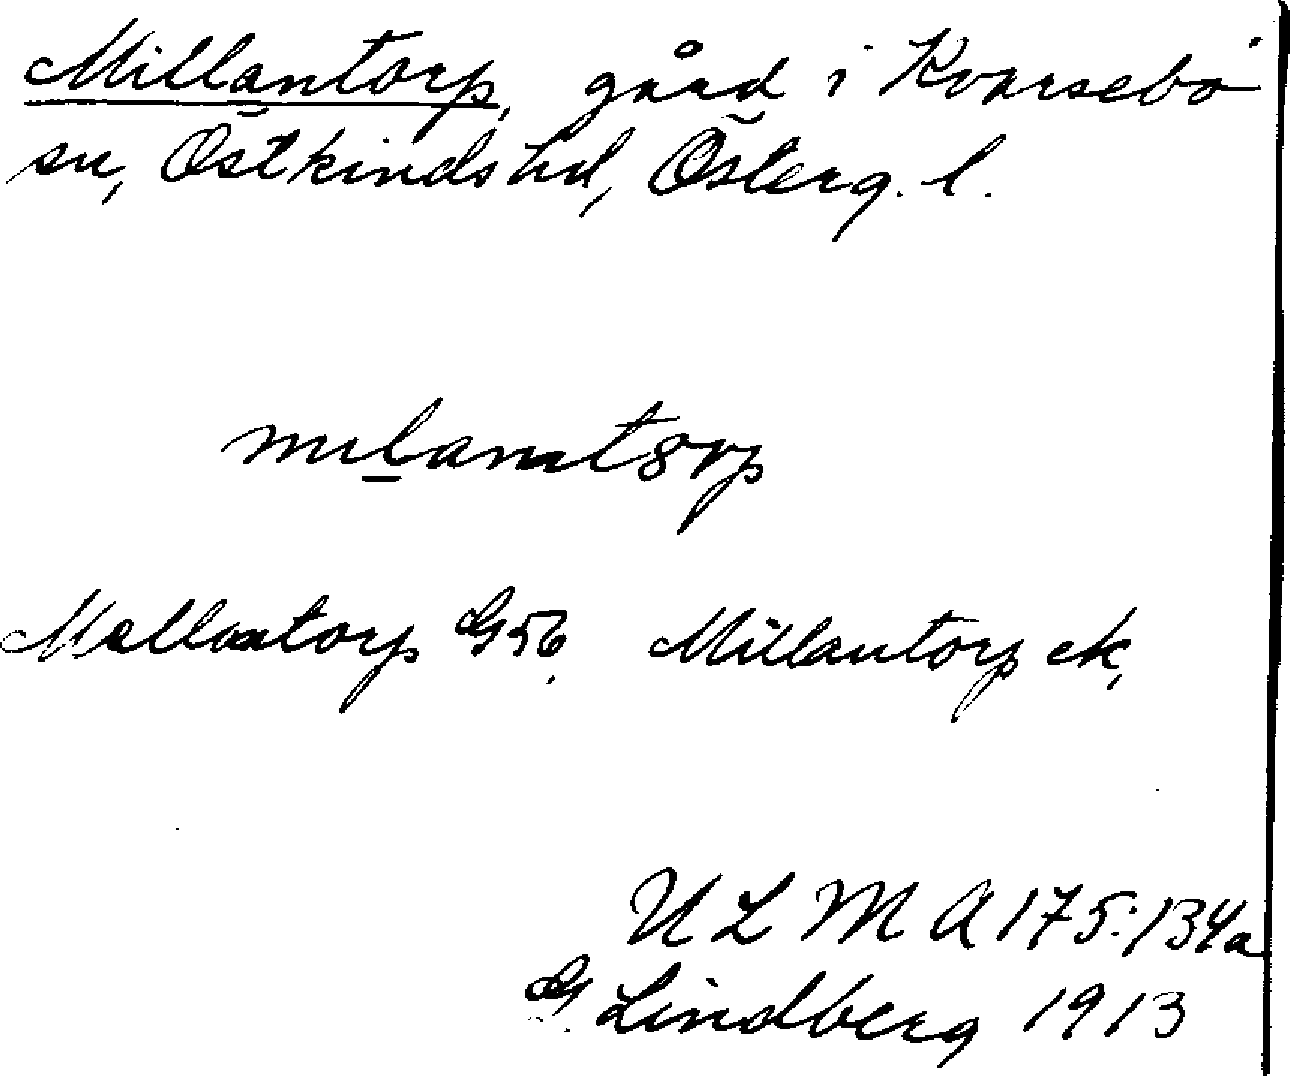 Millantorp, gård i Kvarsebo
sn, Östkinds hd, Österg. l.
milantorp
Mellantorp G56, Millantorp ek,
U L M A 175:134a
G. Lindberg 1913